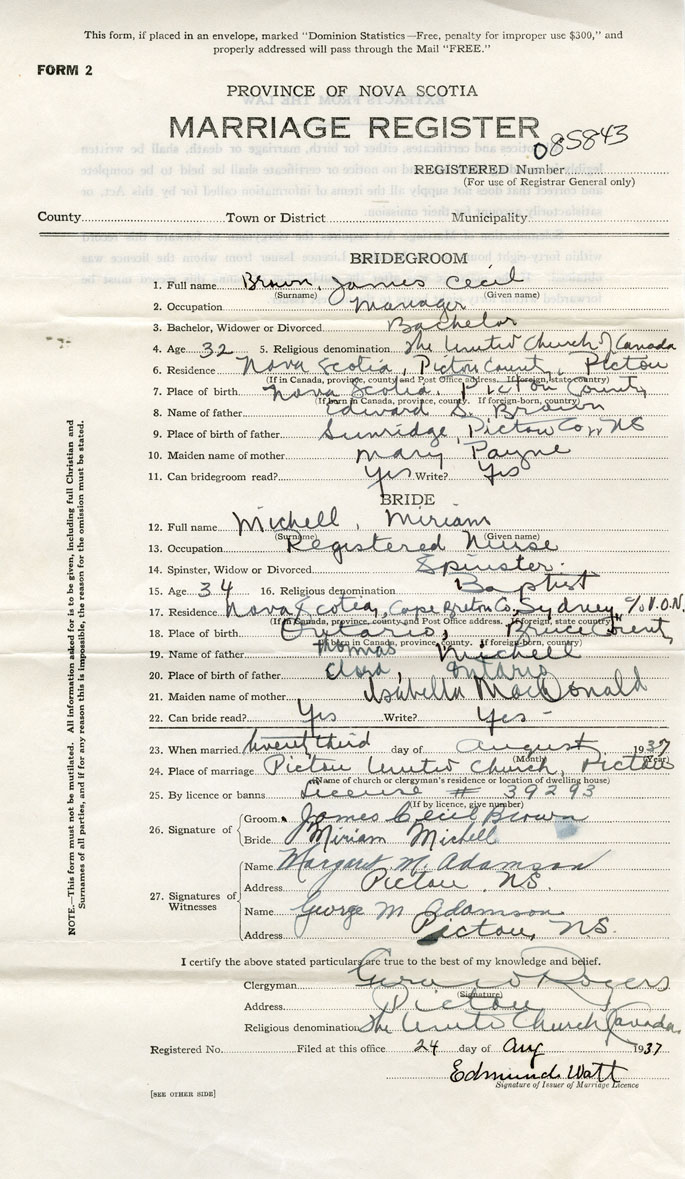 This form, if placed in an envelope, marked "Dominion Statistics—Free, penalty for improper use $300," and
properly addressed will pass through the Mail "FREE."
FORM 2
PROVINCE OF NOVA SCOTIA
MARRIAGE REGISTER
085843
REGISTERED Number
(For use of Registrar General only)
County Town or District Municipality
BRIDEGROOM
1. Full name Brown, James Cecil
(Surname) (Given name)
2. Occupation Manager
3. Bachelor, Widower or Divorced Bachelor
4. Age 32 5. Religious denomination The United Church of Canada
6. Residence Nova Scotia, Pictou County, Pictou
(If in Canada, province, county and Post Office address. If foreign, state country)
7. Place of birth Nova Scotia, Pictou County
(If born in Canada, province, county. If foreign-born, country)
8. Name of father Edward S. Brown
9. Place of birth of father Sunridge, Pictou Co., NS
10. Maiden name of mother Mary Payne
11. Can bridegroom read? Yes Write? Yes
BRIDE
12. Full name Michell, Miriam
(Surname) (Given name)
13. Occupation Registered Nurse
14. Spinster, Widow or Divorced Spinster.
15. Age 34 16. Religious denomination Baptist
17. Residence Nova Scotia, Cape Breton Co. Sydney, c/o V.O.N.
(If in Canada, province, county and Post Office address. If foreign, state country)
18. Place of birth Ontario, Bruce County
(If born in Canada, province, county. If foreign-born, country)
19. Name of father Thomas Michell
20. Place of birth of father Ontario
21. Maiden name of mother Isabella MacDonald
22. Can bride read? Yes Write? Yes -
23. When married twenty third day of August 1937
(Month) (Year)
24. Place of marriage Pictou United Church, Pictou
(Name of church or clergyman's residence or location of dwelling house)
25. By licence or banns License # 39293
(If by licence, give number)
26. Signature of Groom James Cecil Brown
Bride Miriam Michell
27. Signatures of Witnesses Name Margaret M. Adamson
Address Pictou, N.S.
Name George M Adamson
Address Pictou, N.S.
I certify the above stated particulars are true to the best of my knowledge and belief.
Clergyman Rogers
(Signature)
Address Pictou
Religious denomination The United Church Canada
Registered No. Filed at this office 24 day of Aug 1937
Edmund Watt
Signature of Issuer of Marriage Licence
[SEE OTHER SIDE]
NOTE.—This form must not be mutilated. All information asked for is to be given, including full Christian and
Surnames of all parties, and if for any reason this is impossible, the reason for the omission must be stated.